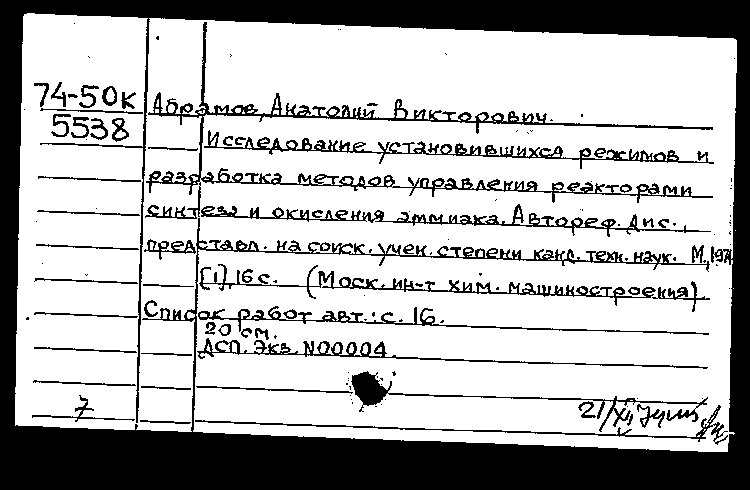 74-50к
5538
Абрамов, Анатолий Викторович.
Исследование установившихся режимов и
разработка методов управления реакторами
синтеза и окисления аммиака. Автореф. дис.,
представл. на соиск. учен. степени канд. техн. наук. М., 1974
[1], 16 с. (Моск. ин-т хим. машиностроения).
Список работ авт.: с. 16.
20 см.
ДСП. Экз. N00004.
7
21/XII